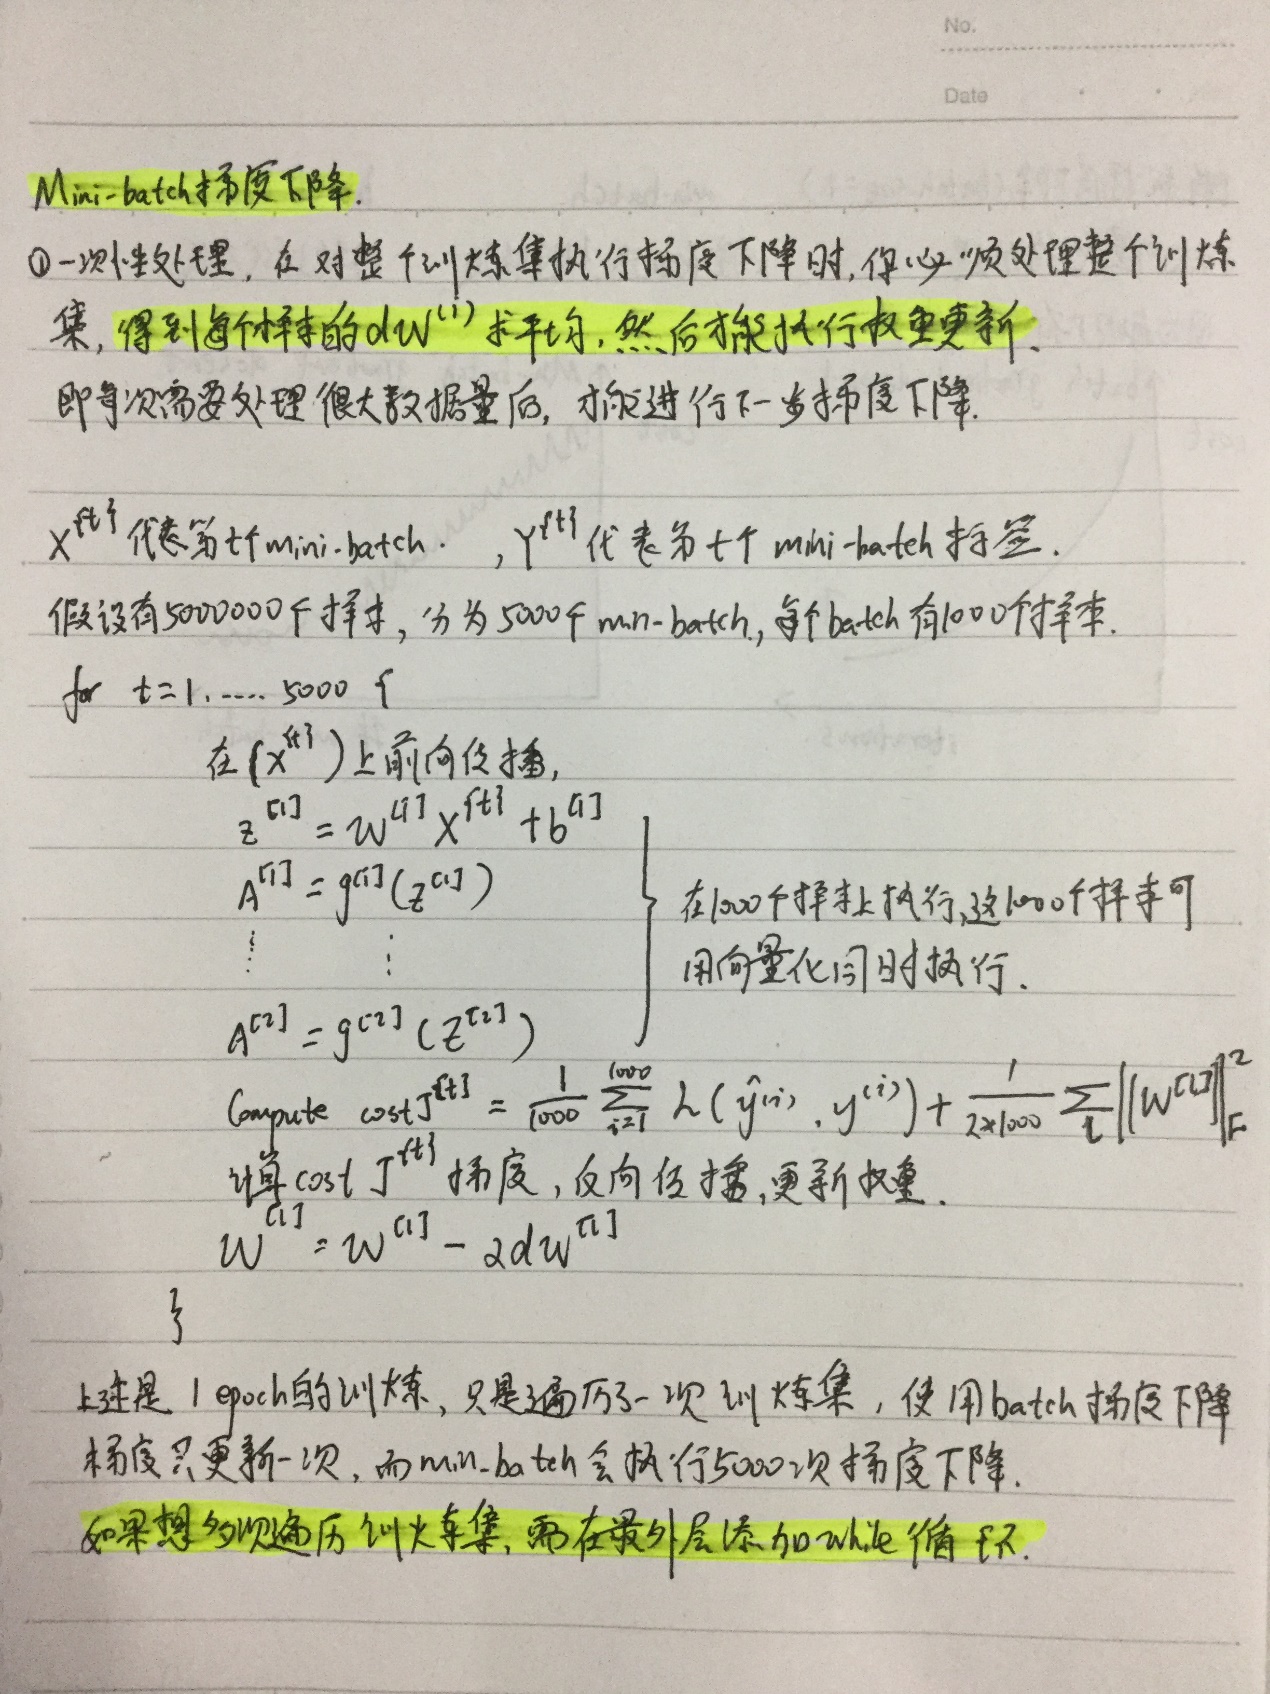 No.
Date
Mini-batch梯度下降.
①一次性处理，在对整个训炼集执行梯度下降时，你必须处理整个训炼
集，得到每个样本的dW^(i)求平均，然后才能执行权重更新.
即每次需要处理很大数据量后，才能进行下一步梯度下降.
X^{t}代表第t个mini-batch. ，Y^{t}代表第t个mini-batch标签.
假设有5000000个样本，分为5000个min-batch，每个batch有1000个样本.
for t=1.....5000 {
在(X^{t})上前向传播，
z^[1] = W^[1] X^{t} + b^[1]
A^[1] = g^[1](z^[1])
⋮ ⋮
在1000个样本上执行，这1000个样本可
用向量化同时执行.
A^[2] = g^[2](Z^[2])
Compute cost J^{t} = 1/1000 ∑_{i=1}^{1000} L(ŷ^(i), y^(i)) + 1/(2×1000) ∑_l ||W^[l]||_F^2
计算cost J^{t}梯度，反向传播，更新权重.
W^[1] = W^[1] - αdW^[1]
}
上述是1 epoch的训炼，只是遍历了一次训炼集，使用batch梯度下降
梯度只更新一次，而min-batch会执行5000次梯度下降.
如果想多次遍历训炼集，需在最外层添加while循环.